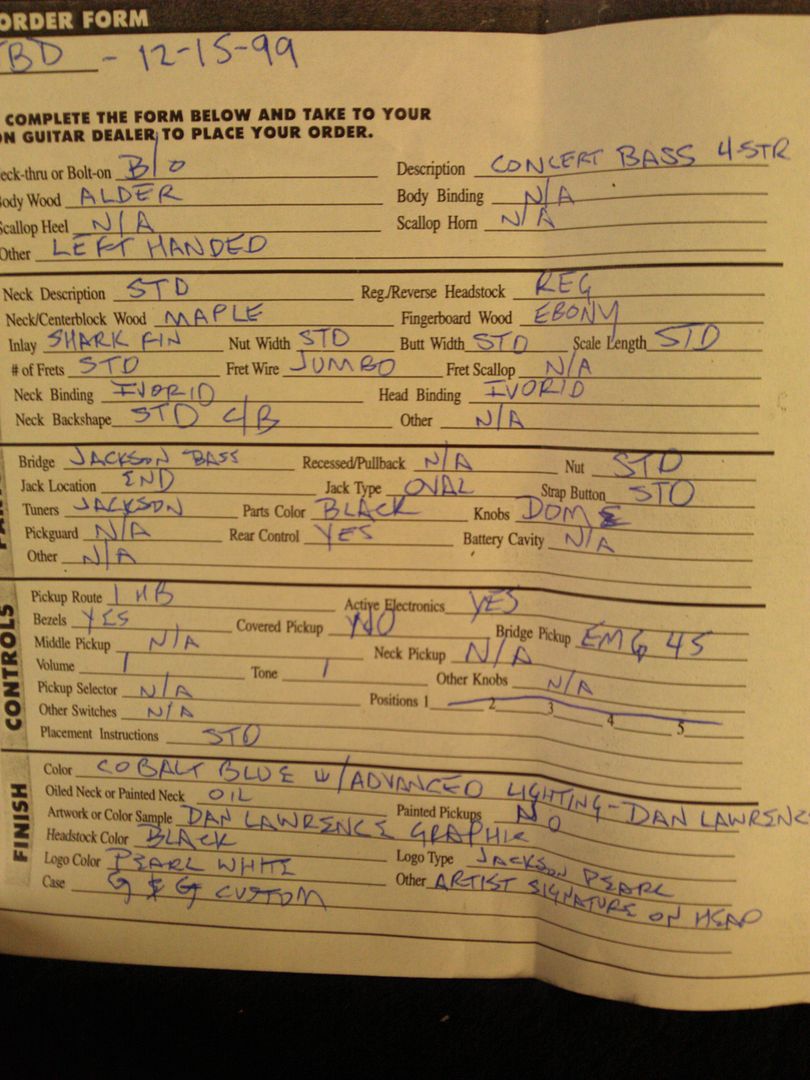 ORDER FORM
TBD - 12-15-99
COMPLETE THE FORM BELOW AND TAKE TO YOUR
ON GUITAR DEALER TO PLACE YOUR ORDER.
eck-thru or Bolt-on B/O Description CONCERT BASS 4-STR
ody Wood ALDER Body Binding N/A
Scallop Heel N/A Scallop Horn N/A
Other LEFT HANDED
Neck Description STD Reg./Reverse Headstock REG
Neck/Centerblock Wood MAPLE Fingerboard Wood EBONY
Inlay SHARK FIN Nut Width STD Butt Width STD Scale Length STD
# of Frets STD Fret Wire JUMBO Fret Scallop N/A
Neck Binding IVORID Head Binding IVORID
Neck Backshape STD C/B Other N/A
Bridge JACKSON BASS Recessed/Pullback N/A Nut STD
Jack Location END Jack Type OVAL Strap Button STD
Tuners JACKSON Parts Color BLACK Knobs DOME
Pickguard N/A Rear Control YES Battery Cavity N/A
Other N/A
CONTROLS
Pickup Route 1 HB Active Electronics YES
Bezels YES Covered Pickup NO Bridge Pickup EMG 45
Middle Pickup N/A Neck Pickup N/A
Volume 1 Tone 1 Other Knobs N/A
Pickup Selector N/A Positions 1 2 3 4 5
Other Switches N/A
Placement Instructions STD
FINISH
Color COBALT BLUE W/ADVANCED LIGHTING-DAN LAWRENC
Oiled Neck or Painted Neck OIL Painted Pickups NO
Artwork or Color Sample DAN LAWRENCE GRAPHIC
Headstock Color BLACK
Logo Color PEARL WHITE Logo Type JACKSON PEARL
Case G & G CUSTOM Other ARTIST SIGNATURE ON HEAD